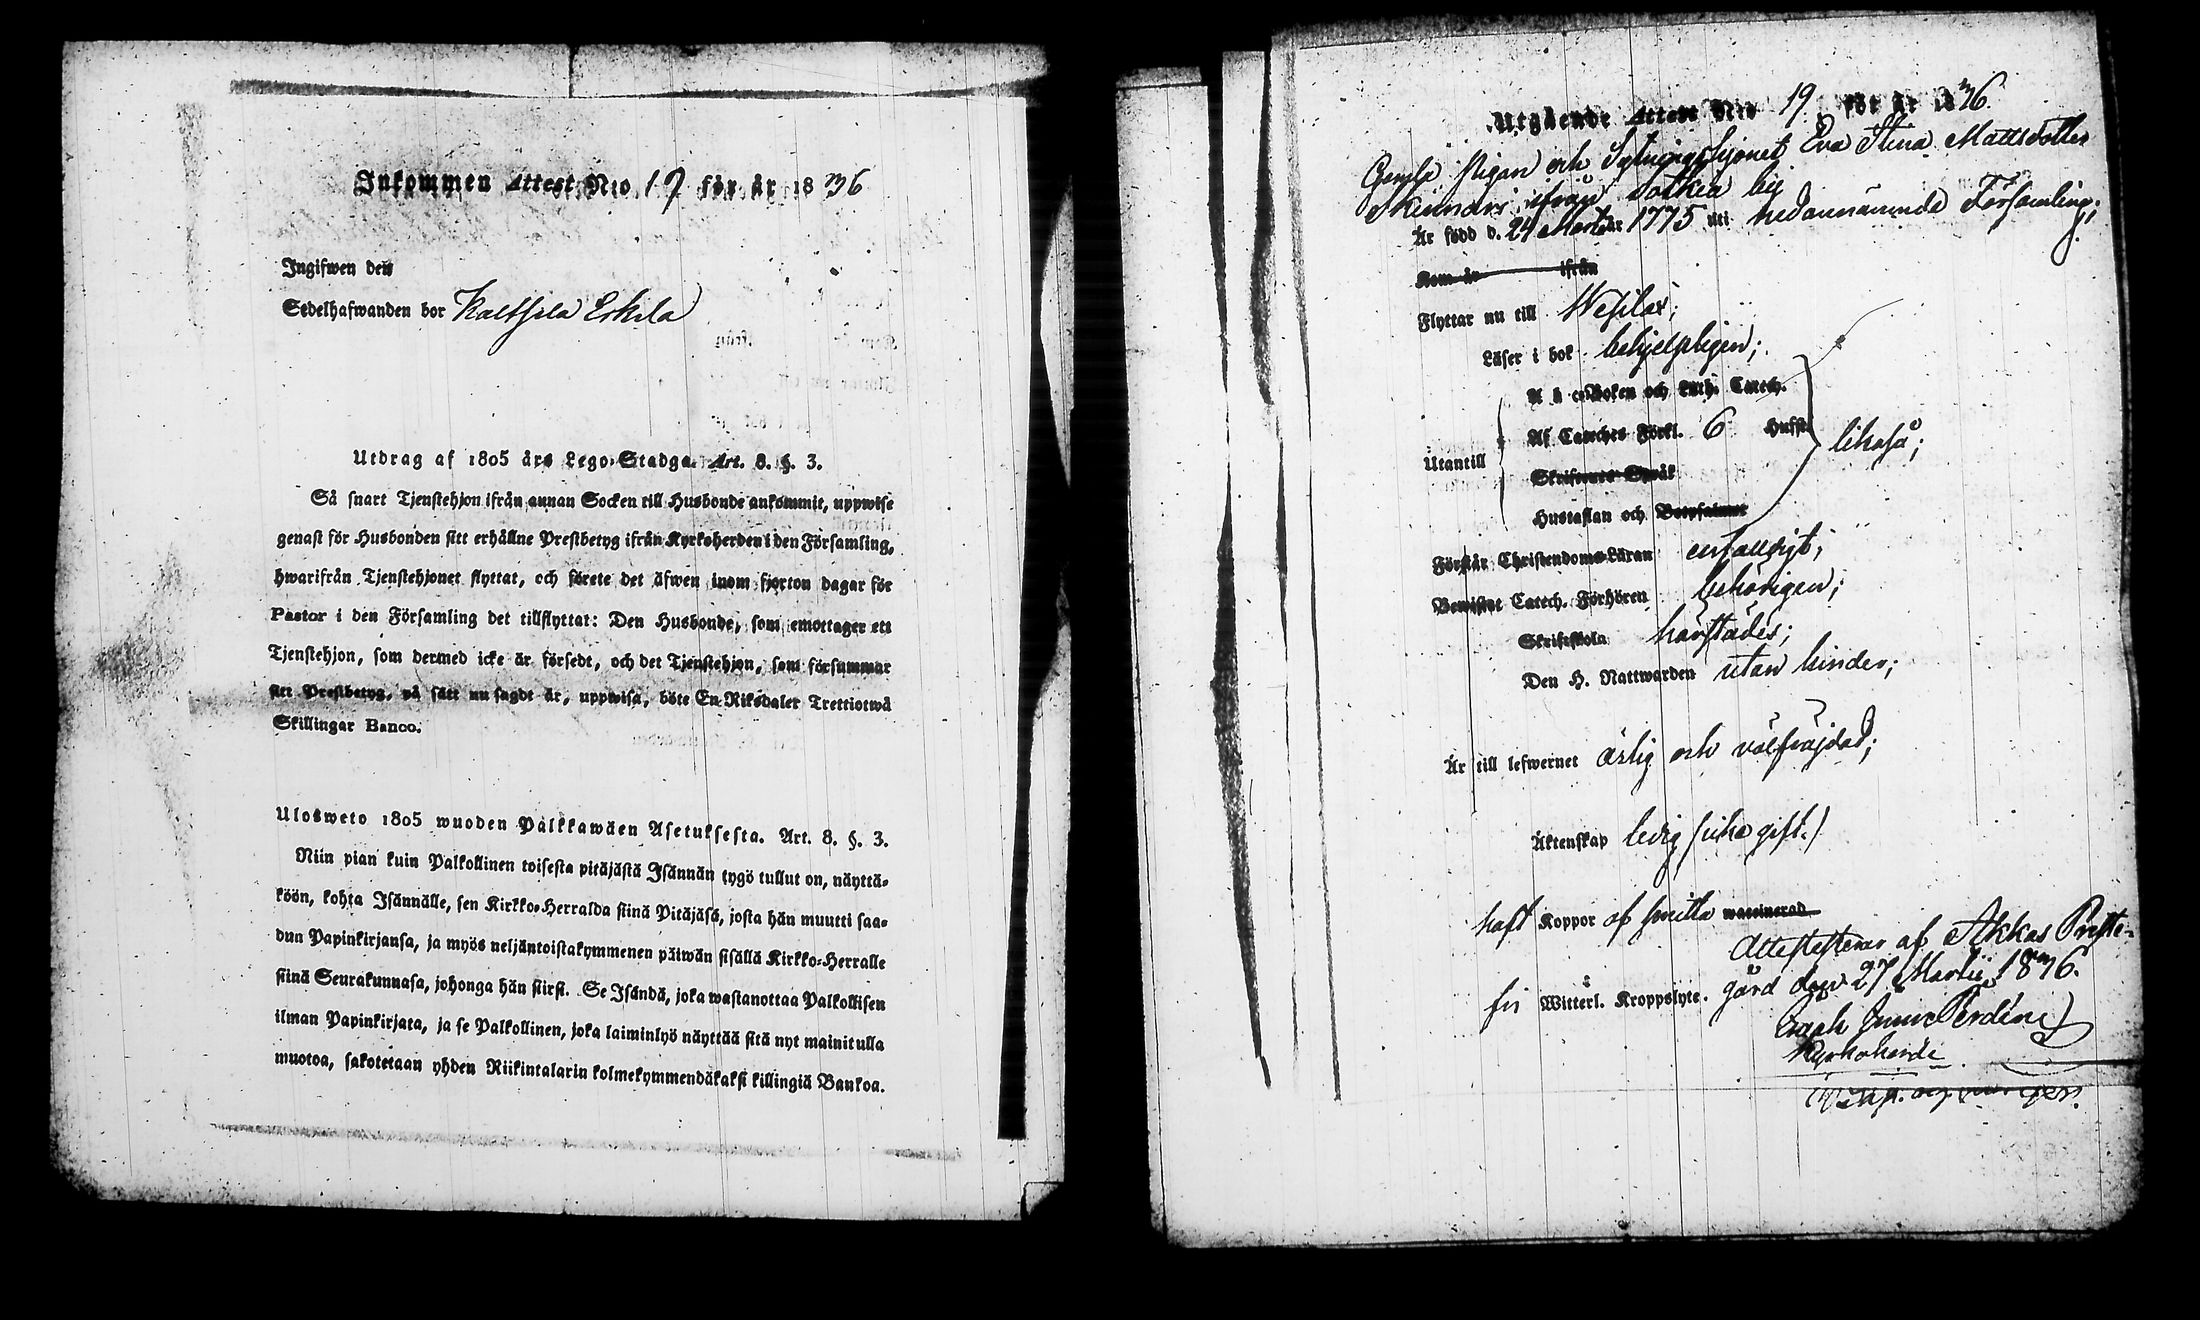 Inkommen Attest N:o 19 för år 1836
Ingifwen den
Sedelhafwanden bor Kaltsila Eskila
Utdrag af 1805 års Lego-Stadga. Art. 8. §. 3.
Så snart Tjenstehjon ifrån annan Socken till Husbonde ankommit, uppwise
genast för Husbonden sitt erhållne Prestbetyg ifrån Kyrkoherden i den Församling,
hwarifrån Tjenstehjonet flyttat, och förete det äfwen inom fjorton dagar för
Pastor i den Församling det tillflyttat: Den Husbonde, som emottager ett
Tjenstehjon, som dermed icke är försedt, och det Tjenstehjon, som försummar
sitt Prestbetyg, på sätt nu sagdt är, uppwisa, böte En Riksdaler Trettiotwå
Skillingar Banco.
Ulosweto 1805 wuoden Palkkawäen Asetuksesta. Art. 8. §. 3.
Niin pian kuin Palkollinen toisesta pitäjästä Isännän tygö tullut on, näyttä-
köön, kohta Isännälle, sen Kirkko-Herralda siinä Pitäjäsä, josta hän muutti saa-
dun Papinkirjansa, ja myös neljäntoistakymmenen päiwän sisällä Kirkko-Herralle
siinä Seurakunnasa, johonga hän siirsi. Se Isändä, joka wastanottaa Palkollisen
ilman Papinkirjata, ja se Palkollinen, joka laiminlyö näyttää sitä nyt mainitulla
muotoa, sakotetaan yhden Riikintalarin kolmekymmendäkaksi killingiä Bankoa.
Utgående Attest N:o 19 för år 1836.
Gamla Pigan och Sytningshjonet Eva Stina Mattsdotter
Skinnari ifrån Sotkia by
Är född d. 24 Martii år 1775 uti nedannämnde Församling;
Kom år ifrån
Flyttar nu till Wesilax;
Läser i bok behjelpligen;
A b c-Boken och Luth. Catech.
Utantill Af Cateches Förkl. 6 Hufst. likaså;
Skriftenes Språk
Hustaflan och Botpsalmer
Förstår Christendoms-Läran enfalldigt;
Bewistat Catech. Förhören behörigen;
Skriftskola härstädes;
Den H. Nattwarden utan hinder;
Är till lefwernet ärlig och välfräjdad;
Äktenskap ledig (icke gift.)
haft Koppor af smitta waccinerad
Attesterar af Akkas Preste-
fri Witterl. Kroppslyte. gård den 27 Martii 1836.
Kyrkoherde